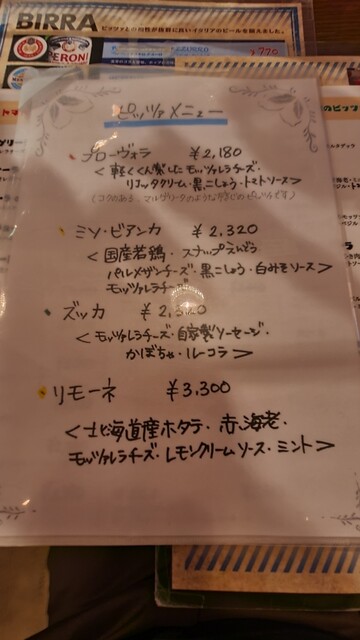 BIRRA
ピッツァとの相性が抜群に良いイタリアのビールを揃えました。
PERONI
¥770
ピッツァメニュー
プローヴォラ ¥2,180
<軽くくん製したモッツァレラチーズ・
リコッタクリーム・黒こしょう・トマトソース>
(コクのある、マルゲリータのような感じのピッツァです)
ミソ・ビアンカ ¥2,320
<国産若鶏・スナップえんどう
パルメザンチーズ・黒こしょう・白みそソース>
モッツァレラチーズ
ズッカ
<モッツァレラチーズ・自家製ソーセージ・
かぼちゃ・ルーコラ>
リモーネ ¥3,300
<北海道産ホタテ・赤海老・
モッツァレラチーズ・レモンクリームソース・ミント>